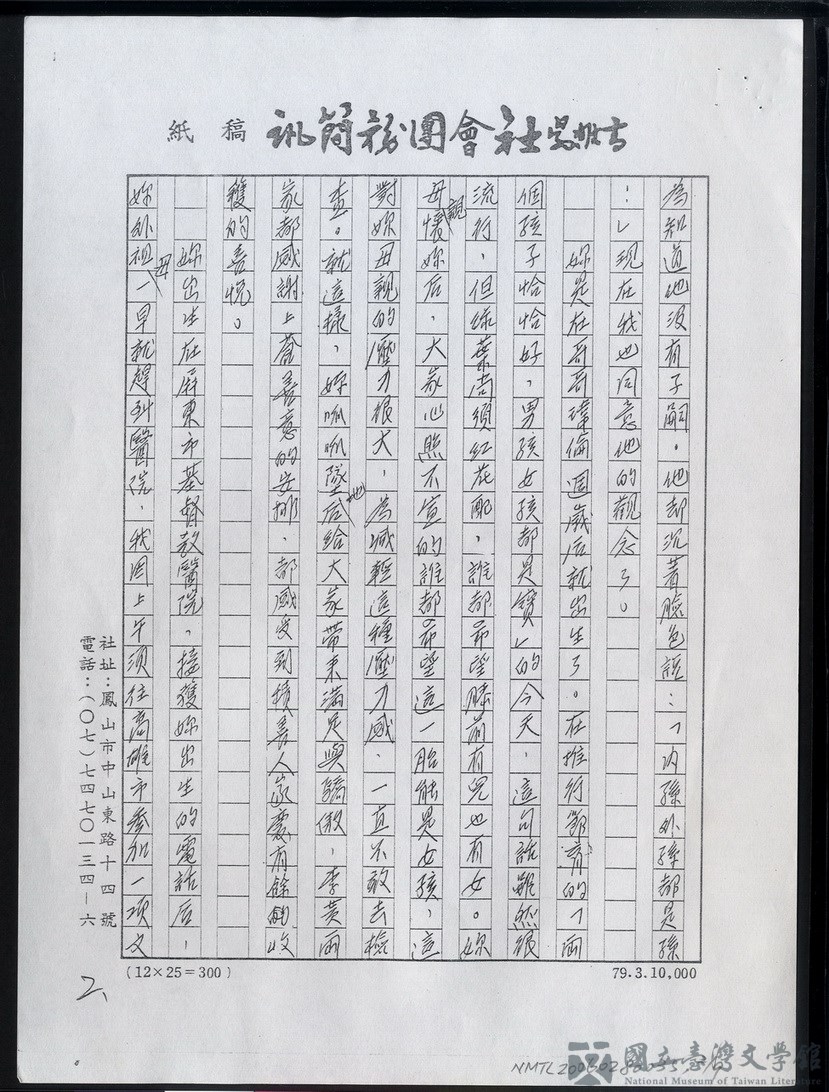 紙稿 訊簡務團會社
為知道他沒有子嗣。他却沉著臉色說：「內孫外孫都是孫
：」現在我也同意他的觀念了。
妳是在哥哥瑋倫週歲后就出生了。在推行節育的「兩
個孩子恰恰好，男孩女孩都是寶」的今天，這句話雖然很
流行，但綠葉尚須紅花配，誰都希望膝前有兒也有女。妳
母親懷妳后，大家心照不宣的誰都希望這一胎能是女孩，這
對妳母親的壓力很大，為減輕這種壓力感，一直不敢去檢
查。就這樣，妳呱呱墜地后給大家帶來滿足與驕傲，李黃兩
家都感謝上蒼善意的安排，都感受到積善人家慶有餘的收
穫的喜悅。
妳出生在屏東市基督教醫院，接獲妳出生的電話后，
妳外祖母一早就趕到醫院，我因上午須往高雄市參加一項文
社址：鳳山市中山東路十四號
電話：(〇七)七四七〇一三四－六
(12×25=300)
79.3.10,000
2、
國立臺灣文學館
National Museum of Taiwan Literature